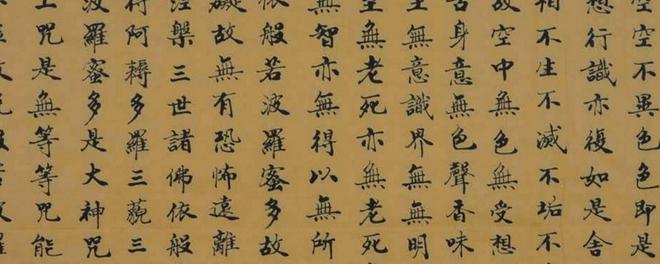 空空不異色色即是
想行識亦復如是舍
相不生不滅不垢不
故空中無色無受想
舌身意無色聲香味
至無意識界無無明
至無老死亦無老死
無智亦無得以無所
依般若波羅蜜多故
礙故無有恐怖遠離
涅槃三世諸佛依般
得阿耨多羅三藐三
波羅蜜多是大神咒
上咒是無等等咒能